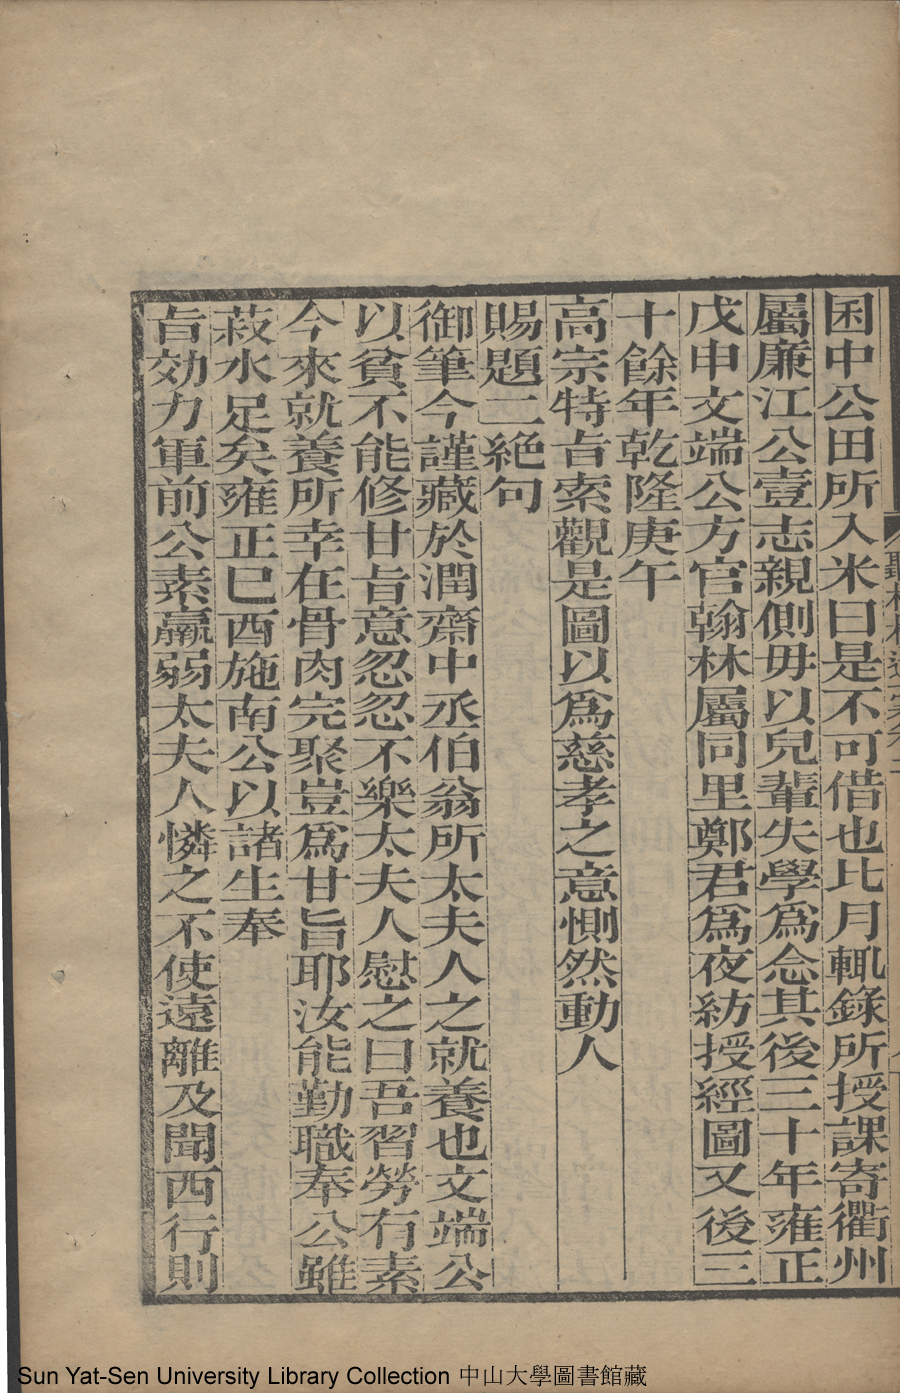 囷中公田所入米曰是不可借也比月輒錄所授課寄衢州
屬廉江公壹志親側毋以兒輩失學爲念其後三十年雍正
戊申文端公方官翰林屬同里鄭君爲夜紡授經圖又後三
十餘年乾隆庚午
高宗特旨索觀是圖以爲慈孝之意惻然動人
賜題二絶句
御筆今謹藏於潤齋中丞伯翁所太夫人之就養也文端公
以貧不能修甘旨意忽忽不樂太夫人慰之曰吾習勞有素
今來就養所幸在骨肉完聚豈爲甘旨耶汝能勤職奉公雖
菽水足矣雍正巳酉施南公以諸生奉
旨効力軍前公素羸弱太夫人憐之不使遠離及聞西行則
Sun Yat-Sen University Library Collection 中山大學圖書館藏